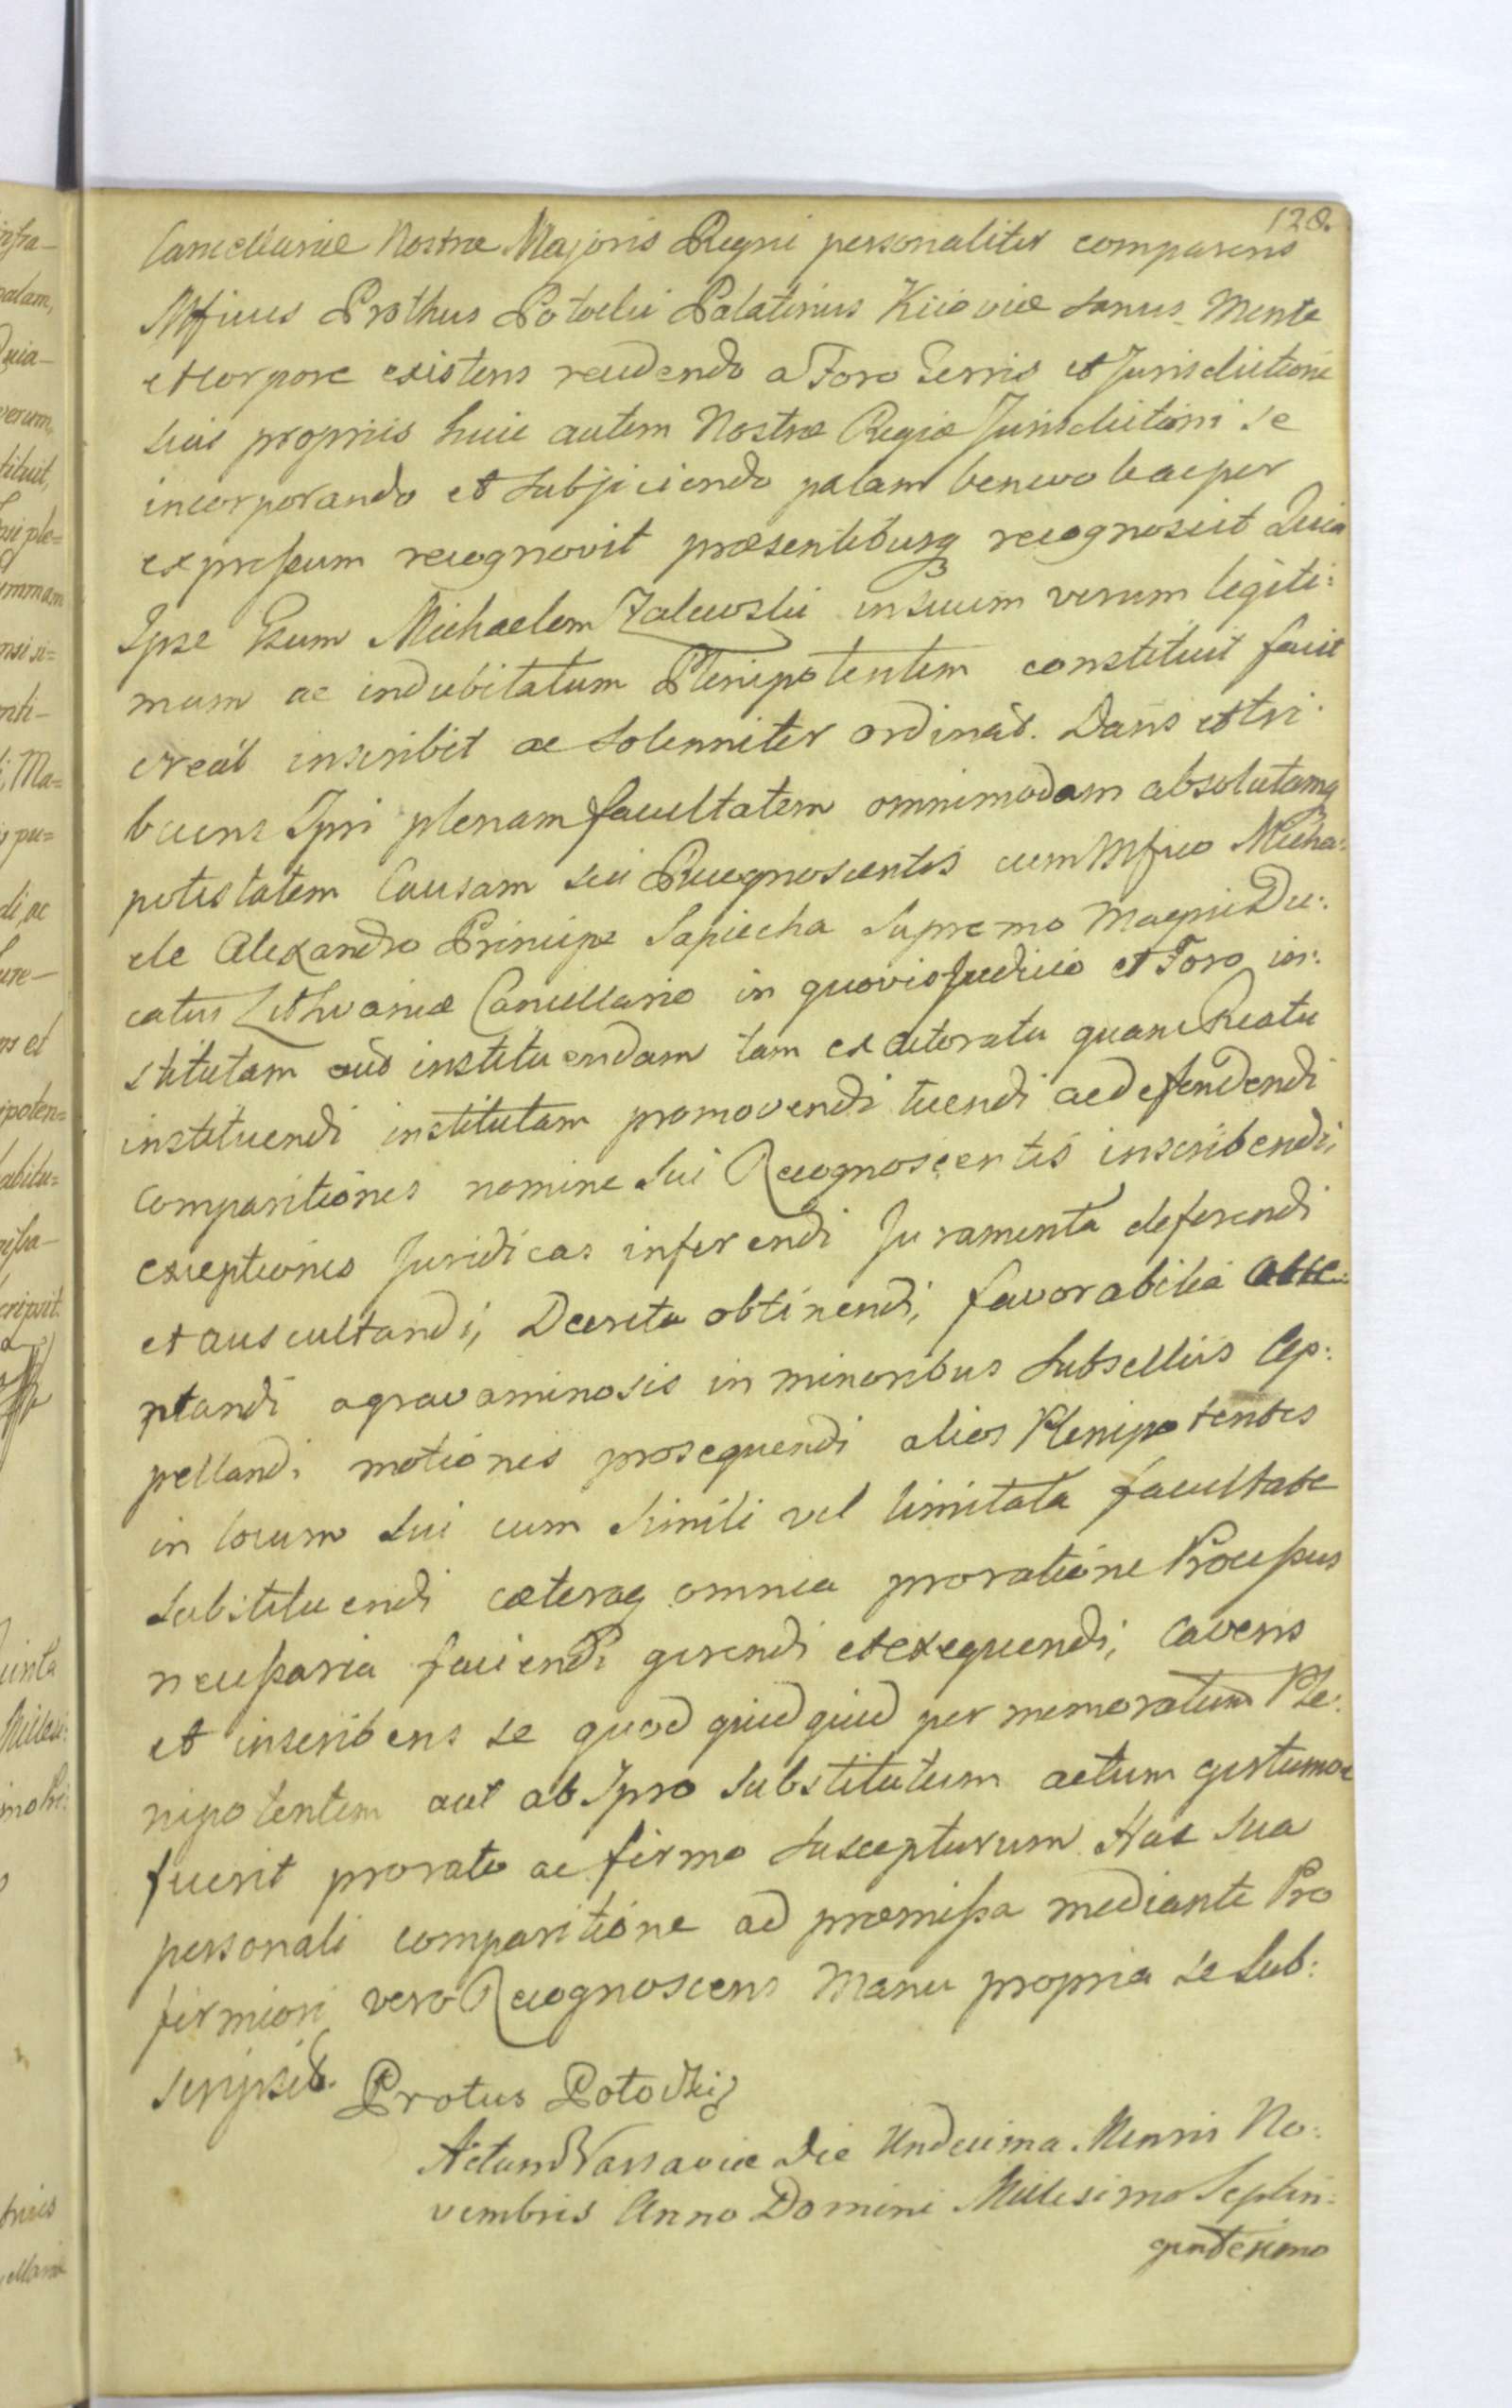 128.
Cancellariæ Nostræ Majoris Regni personaliter comparens
Mficus Prothus Potocki Palatinus Kiioviæ Sanus Mente
et Corpore existens recedendo a Foro Terris et Jurisdictione
suis propriis huic autem Nostræ Regiæ Jurisdictioni se
incorporando et subjiciendo palam benevole ac per
expressum recognovit præsentibusq recognoscit Quia
Ipse Gsum Michaelem Zalewski in suum verum legiti:
mum ac indubitatum Plenipotentem constituit facit
creat inscribit ac solenniter ordinat. Dans et tri:
buens Ipsi plenam facultatem omnimodam absolutamq
potestatem Causam sui Recognoscentis cum Mfico Micha:
ele Alexandro Principe Sapiecha Supremo Magni Du:
catus Lithvaniæ Cancellario in quovis Judicio et Foro in:
stitutam aut instituendam tam ex actoratu quam Reatu
instituendi institutam promovendi tuendi ac defendendi
Comparitiones nomine sui Recognoscentis inscribendi,
exceptiones Juridicas inferendi Juramenta deferendi
et auscultandi, Decreta obtinendi, favorabilia acce:
ptandi agravaminosis in minoribus Subselliis Ap:
pellandi motiones prosequendi alios Plenipotentes
in locum sui cum simili vel limitata facultate
substituendi cæteraq omnia pro ratione Processus
necessaria faciendi gerendi et exequendi, Cavens
et inscribens se quod quidquid per memoratum Ple:
nipotentem aut ab Ipso substitutum actum gestumve
fuerit pro rato ac firmo suscepturum Hac sua
personali comparitione ad præmissa mediante Pro
firmiori vero Recognoscens Manu propria se sub:
scripsit. Protus Potocki
Actum Varsaviæ Die Undecima Mensis No:
vembris Anno Domini Millesimo Septin:
gentesimo